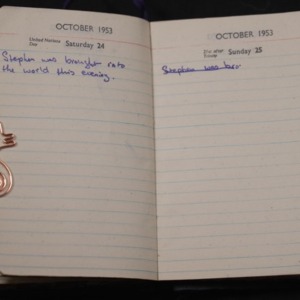 OCTOBER 1953
United Nations Day
Saturday 24
Stephen was brought into
the world this evening.
OCTOBER 1953
21st after Trinity
Sunday 25
Stephen was born